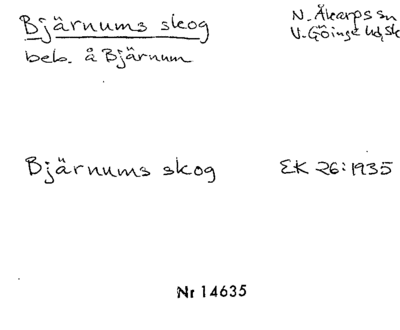 Bjärnums skog
N. Åkarps sn
beb. å Bjärnum
V. Göinge hd, Sk
Bjärnums skog
EK 26:1935
Nr 14635